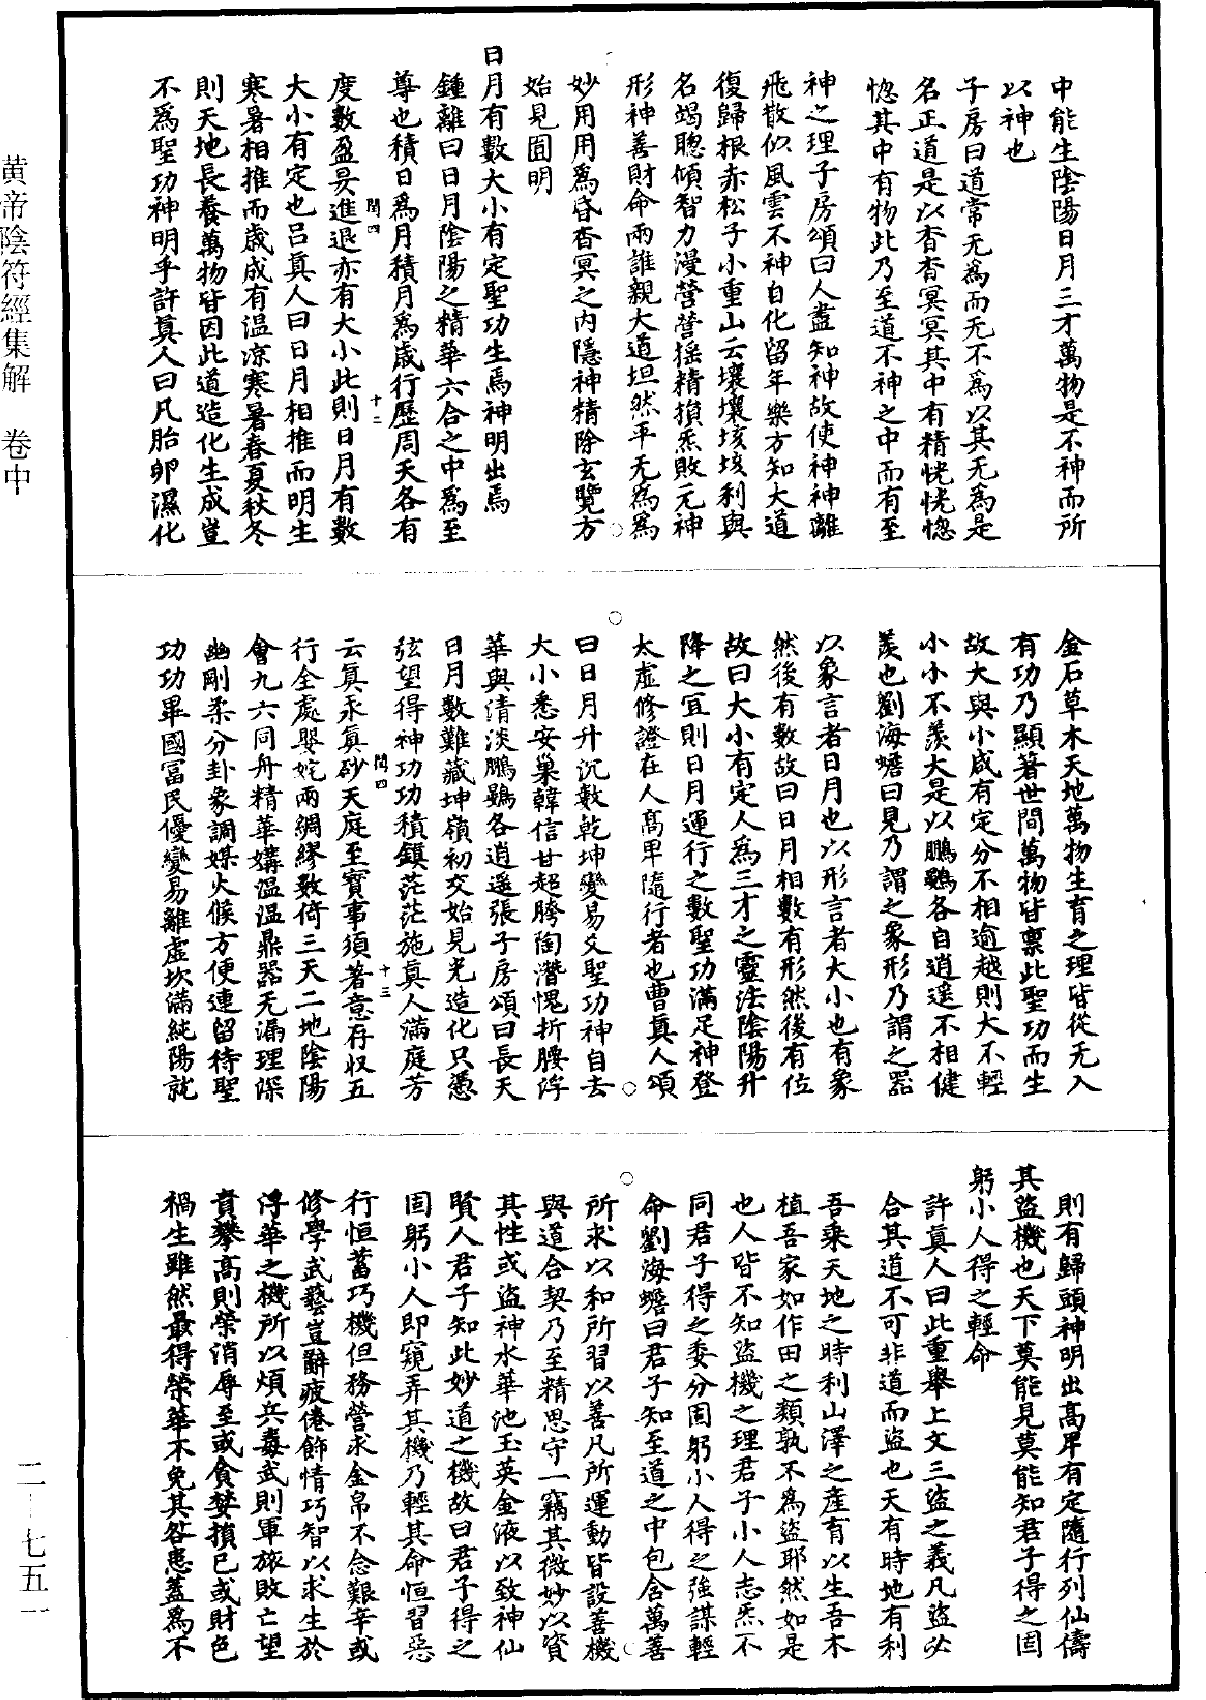 中能生陰陽日月三才萬物是不神而所
以神也
子房曰道常无為而无不為以其无為是
名正道是以杳杳冥冥其中有精恍恍惚
惚其中有物此乃至道不神之中而有至
神之理子房頌曰人盡知神故使神神離
飛散似風雲不神自化留年樂方知大道
復歸根赤松子小重山云壤壤垓垓利與
名竭聰傾智力漫營營搖精損炁敗元神
形神善財命兩誰親大道坦然平无為為
妙用用為昏杳冥之内隱神精除玄覽方
始見圎明
日月有數大小有定聖功生焉神明出焉
鍾離曰日月陰陽之精華六合之中為至
尊也積日為月積月為歳行歷周天各有
閏四 十二
度數盈昃進退亦有大小此則日月有數
大小有定也呂真人曰日月相推而明生
寒暑相推而歳成有温凉寒暑春夏秋冬
則天地長養萬物皆因此道造化生成豈
不為聖功神明乎許真人曰凡胎卵濕化
金石草木天地萬物生育之理皆從无入
有功乃顯著世間萬物皆禀此聖功而生
故大與小咸有定分不相逾越則大不輕
小小不羨大是以鵬鷃各自逍遥不相健
羨也劉海蟾曰見乃謂之象形乃謂之器
以象言者日月也以形言者大小也有象
然後有數故曰日月相數有形然後有位
故曰大小有定人為三才之靈法陰陽升
降之宜則日月運行之數聖功滿足神登
太虚修證在人髙卑隨行者也曹真人頌
曰日月升沉數乾坤變易爻聖功神自去
大小悉安巢韓信甘超胯陶潛愧折腰浮
華與清淡鵬鷃各逍遥張子房頌曰長天
日月數難藏坤嶺初交始見光造化只憑
弦望得神功功積鎮茫茫施真人滿庭芳
閏四 十三
云真汞真砂天庭至寳事須著意存収五
行全處嬰姹兩綢繆数倚三天二地陰陽
會九六同舟精華媾温温鼎器无漏理深
幽剛柔分卦象調媒火候方便連留待聖
功功畢國富民優變易離虚坎滿純陽就
則有歸頭神明出髙卑有定隨行列仙儔
其盜機也天下莫能見莫能知君子得之固
躬小人得之輕命
許真人曰此重舉上文三盗之義凡盜必
合其道不可非道而盜也天有時地有利
吾乘天地之時利山澤之産有以生吾木
植吾家如作田之類孰不為盜耶然如是
也人皆不知盜機之理君子小人志炁不
同君子得之委分固躬小人得之強謀輕
命劉海蟾曰君子知至道之中包含萬善
所求以和所習以善凡所運動皆設善機
與道合契乃至精思守一竊其微妙以資
其性或盜神水華池玉英金液以致神仙
賢人君子知此妙道之機故曰君子得之
固躬小人即窺弄其機乃輕其命恒習惡
行恒蓄巧機但務營求金帛不念艱辛或
修學武藝豈辭疲倦飾情巧智以求生於
浮華之機所以煩兵毒武則軍旅敗亡望
貴攀高則榮消辱至或貪婪損己或財色
禍生雖然最得榮華不免其咎患蓋為不
黄帝陰符經集解 卷中
二—七五一